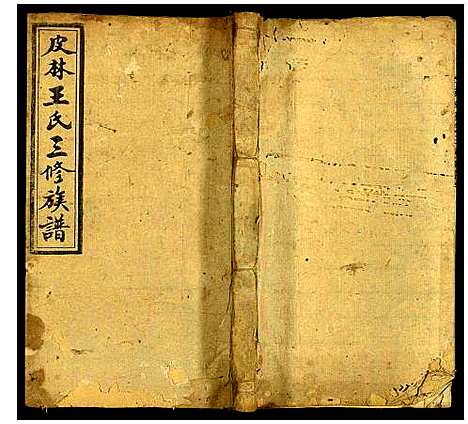 皮林王氏三修族譜